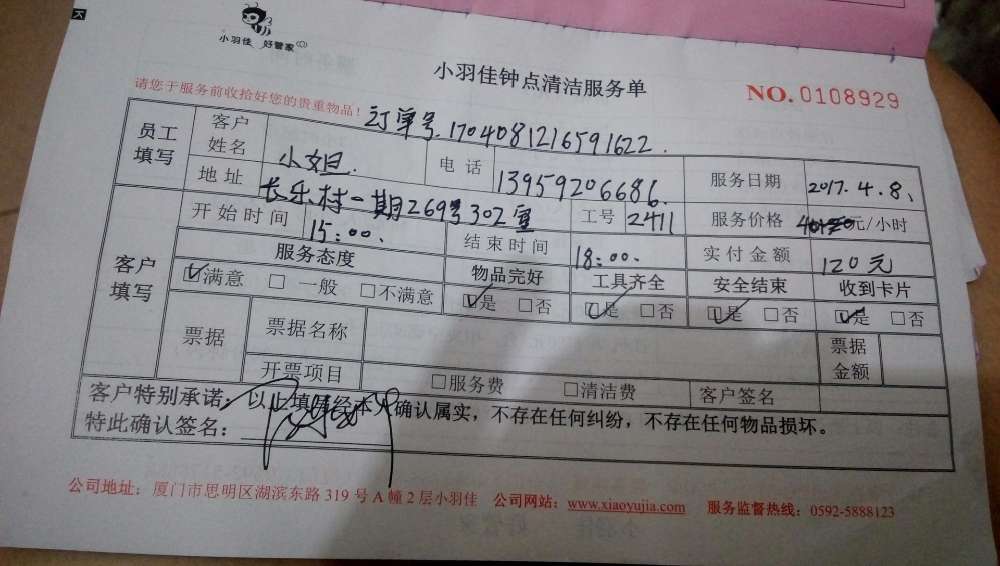 小羽佳 好管家
小羽佳钟点清洁服务单
请您于服务前收拾好您的贵重物品！
NO. 0108929
订单号.1704081216591622.
员工填写 客户姓名 小姐. 电话 13959206686. 服务日期 2017.4.8、
地址 长乐村一期269号302室 工号 2411 服务价格 元/小时
客户填写 开始时间 15:00. 结束时间 18:00. 实付金额 120元
服务态度 物品完好 工具齐全 安全结束 收到卡片
☑满意 □一般 □不满意 ☑是 □否 ☑是 □否 ☑是 □否 ☑是 □否
票据 票据名称 票据金额
开票项目 □服务费 □清洁费 客户签名
客户特别承诺：以上填写经本人确认属实，不存在任何纠纷，不存在任何物品损坏。
特此确认签名：
公司地址：厦门市思明区湖滨东路 319 号 A 幢 2 层小羽佳 公司网站：www.xiaoyujia.com 服务监督热线：0592-5888123